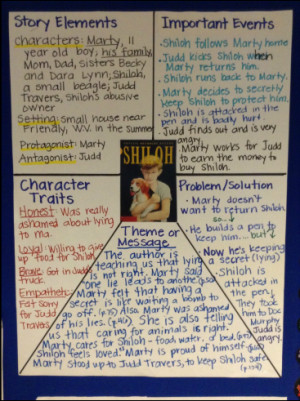 Story Elements
characters: Marty, 11
year old boy, his family,
Mom, Dad, sisters Becky
and Dara Lynn; Shiloh,
a small beagle; Judd
Travers, Shiloh's abusive
owner
Setting: small house near
Friendly, W.V. in the Summer
Protagonist: Marty
Antagonist: Judd
Important Events
Shiloh follows Marty home
Judd kicks Shiloh when
Marty returns him.
Shiloh runs back to Marty.
Marty decides to secretly
keep Shiloh to protect him.
Shiloh is attacked in the
pen and is badly hurt.
Judd finds out and is very
angry.
Marty works for Judd
to earn the money to
buy Shiloh.
SHILOH
Character
Traits
Honest: Was really
ashamed about lying
to ma.
Loyal: Willing to give
up food for Shiloh
Brave: Got in Judd's
truck.
Empathetic:
Felt Sorry
for Judd
Travers
Problem/Solution
Marty doesn't
want to return Shiloh
so...
He builds a pen to
keep him... but
Now he's keeping
a secret (lying)
Shiloh is
attacked in
the pen.
They took
him to Doc
Murphy
Judd is
angry.
Theme or
Message
The author is
teaching us that lying
is not right. Marty said
"one lie leads to another."
Marty felt that having a
secret is like waiting a bomb to
go off. Also Marty was ashamed
of his lies. She is also telling
us that caring for animals is right.
Marty cares for Shiloh - food, water, bed,
Shiloh feels loved. Marty is proud of himself.
Marty stood up to Judd Travers, to keep Shiloh safe